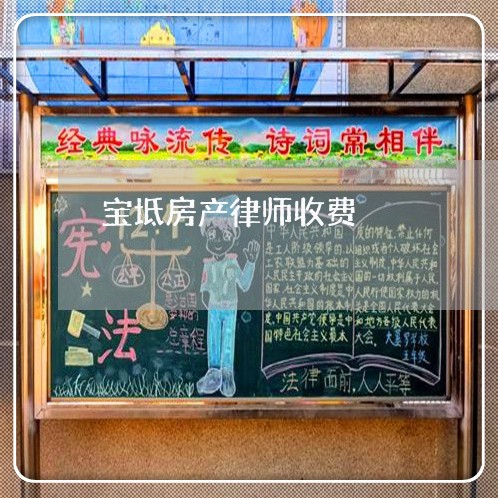 经典咏流传 诗词常相伴
宝坻房产律师收费
宪
法
公平
公正
总章程
中华人民共和国
是工人阶级领导的,以
工农联盟为基础的
人民民主专政的社会主义
国家.社会主义制度是中
华人民共和国的根本制
度.中国共产党领导是中
国特色社会主义最本
质的特征.禁止任何
组织或者个人破坏社会
主义制度.中华人民共和
国的一切权利属于人民.
人民行使国家权力的机
关是全国人民代表大会
和地方各级人民代表
大会.
五年级
法律面前,人人平等